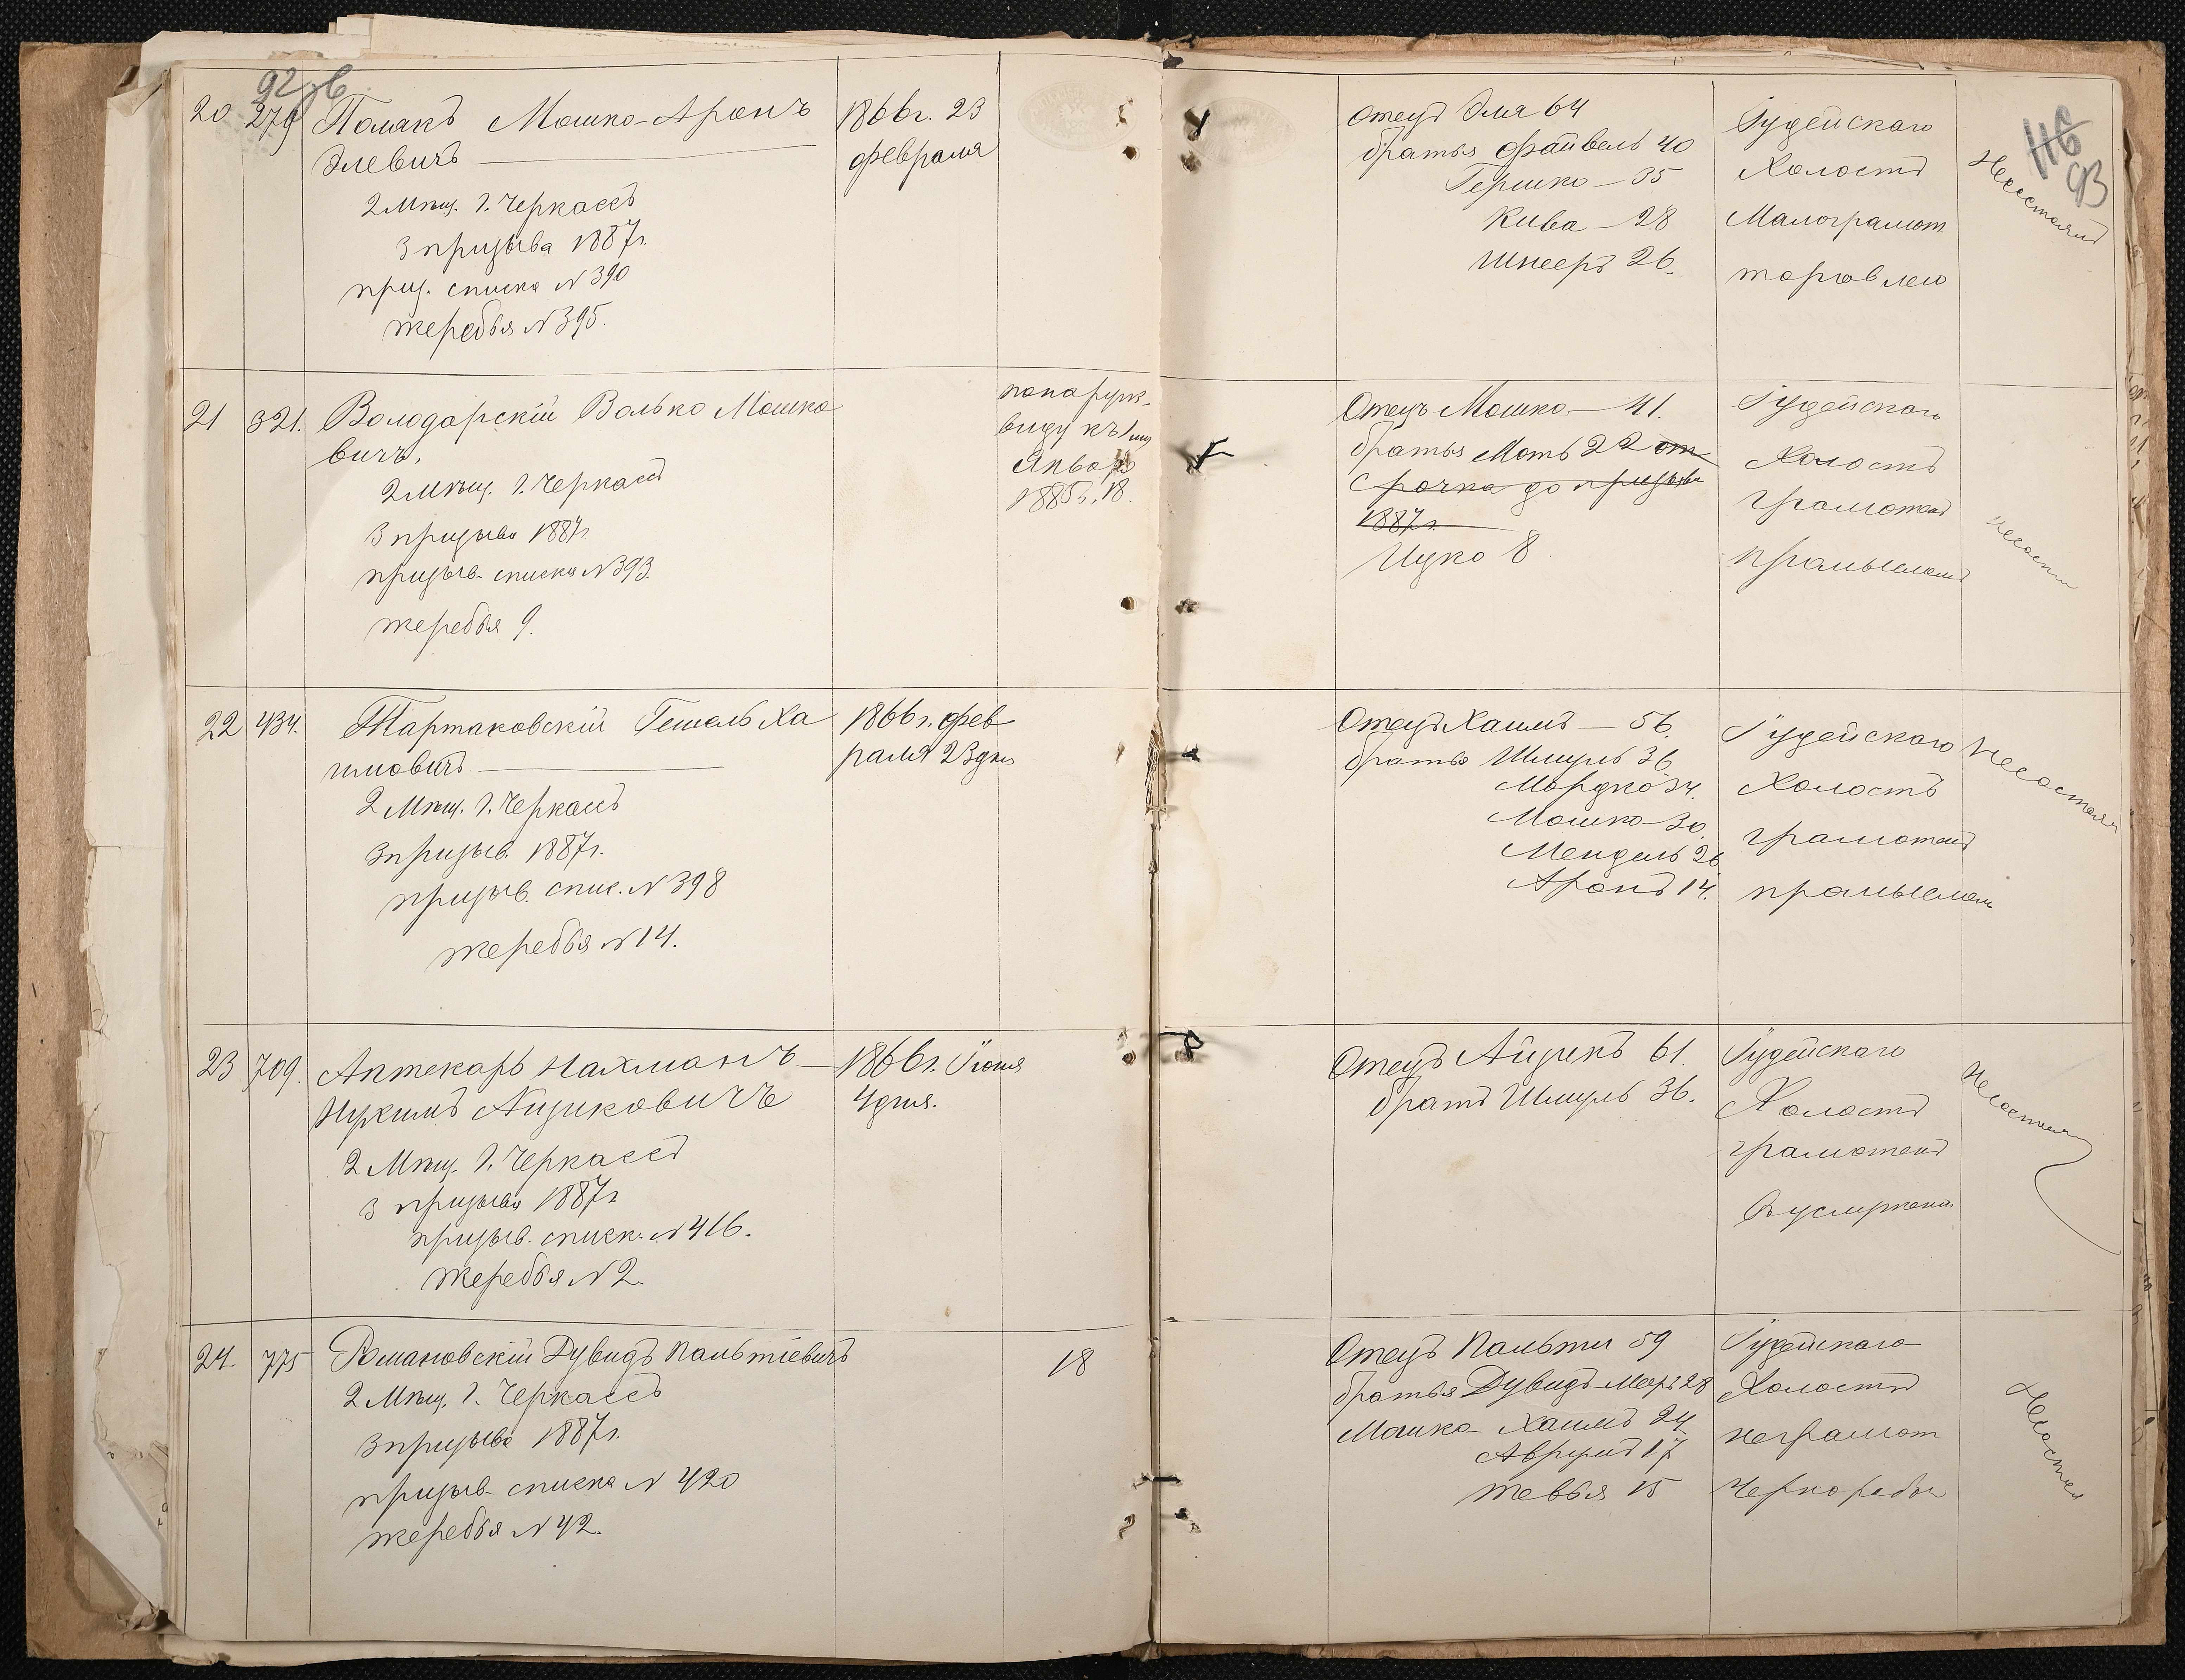 92 об
116
93
20 279 Полякъ Мошко-Аронъ 1866г. 23
Элевичъ февраля
2 Мѣщ. г. Черкассъ
3 призыва 1887г.
приз. списка №390
жеребья №395.
Отецъ Эля 64
братья Файвель 40
Гершко — 35
Кива — 28
Шнееръ 26.
Іудейскаго
Холостъ
Малограмот.
торговлею
Несостоялъ
21 321. Володарскій Волько Мошко
вичъ.
2 Мѣщ. г. Черкассъ
3 призыва 1887г.
призыв. списка №393.
жеребья 9.
по наружн.
виду къ 1му
Января
1885г. 18.
Отецъ Мошко — 41.
братья Моть 22 от
срочка до призыва
1887г.
Ицко 8
Іудейскаго
Холостъ
грамотенъ
промысломъ
22 434. Тартаковскій Гешель Ха 1866г. фев
имовичъ раля 23 дня
2 Мѣщ. г. Черкассъ
3 призыв. 1887г.
призыв. спис. №398
жеребья №14.
Отецъ Хаимъ — 56.
братья Шмуль 36
Мордко 34.
Мошко — 30.
Мендель 26
Аронъ 14.
Іудейскаго
Холостъ
грамотенъ
промысломъ
Несостоялъ
23 709. Аптекарь Нахманъ — 1866г. Іюня
Нухимъ Айзиковичъ 4 дня.
2 Мѣщ. г. Черкассъ
3 призыва 1887г
призыв. списк. №416.
жеребья №2.
Отецъ Айзикъ 61.
братъ Шмуль 36.
Іудейскаго
Холостъ
грамотенъ
Въ услуженіи
24 775 Романовскій Дувидъ Пальтіевичъ 18
2 Мѣщ. г. Черкассъ
3 призыва 1887г.
призыв. списка № 420
жеребья №42.
Отецъ Пальти 59
братья Дувидъ-Меръ 28
Мошко-Хаимъ 24
Аврумъ 17
Тевья 15
Іудейскаго
Холостъ
неграмот
Чернорабоч